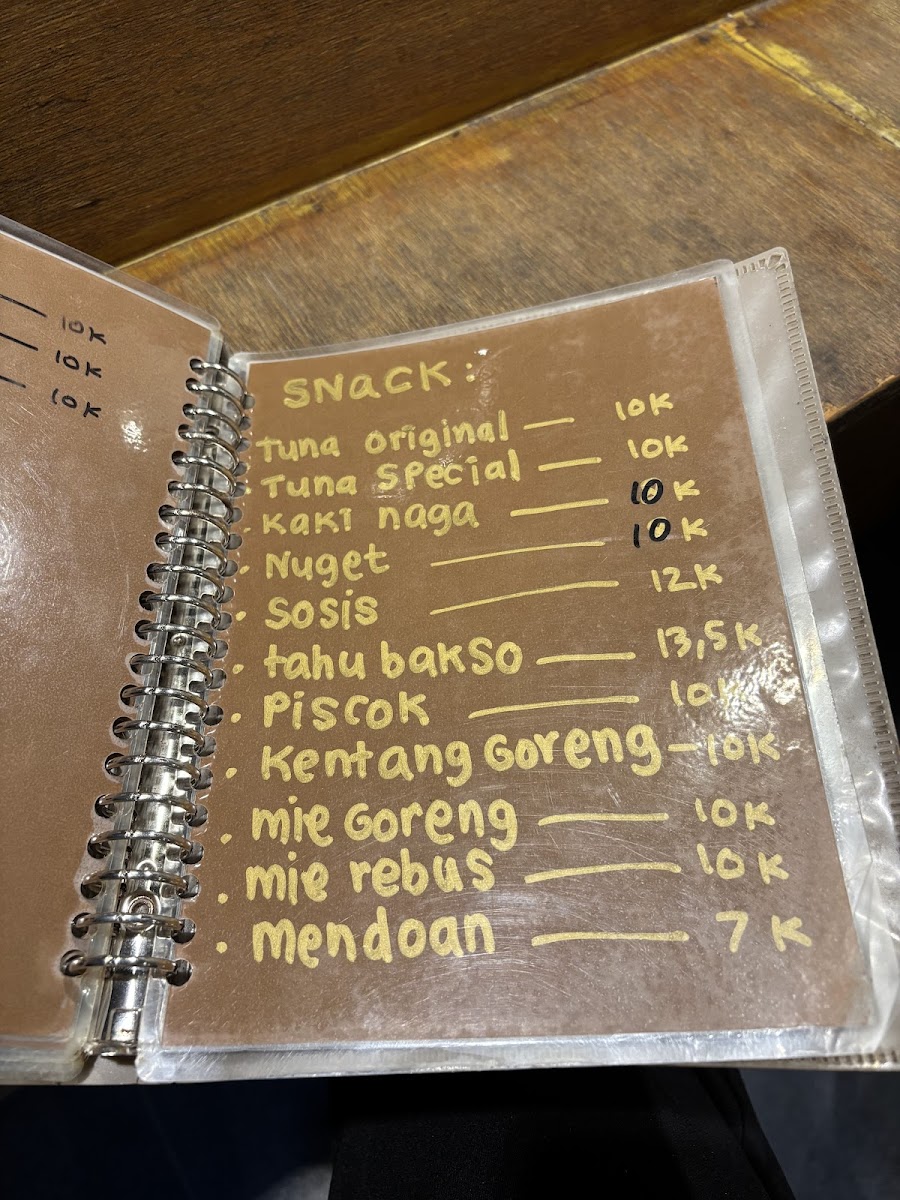 10K
10K
10K
SNacK:
Tuna original — 10K
Tuna Special — 10K
· Kaki naga — 10K
· Nuget — 10K
· Sosis — 12K
· tahu bakso — 13,5K
· Piscok — 10K
· Kentang Goreng — 10K
· mie Goreng — 10K
· mie rebus — 10K
· mendoan — 7K